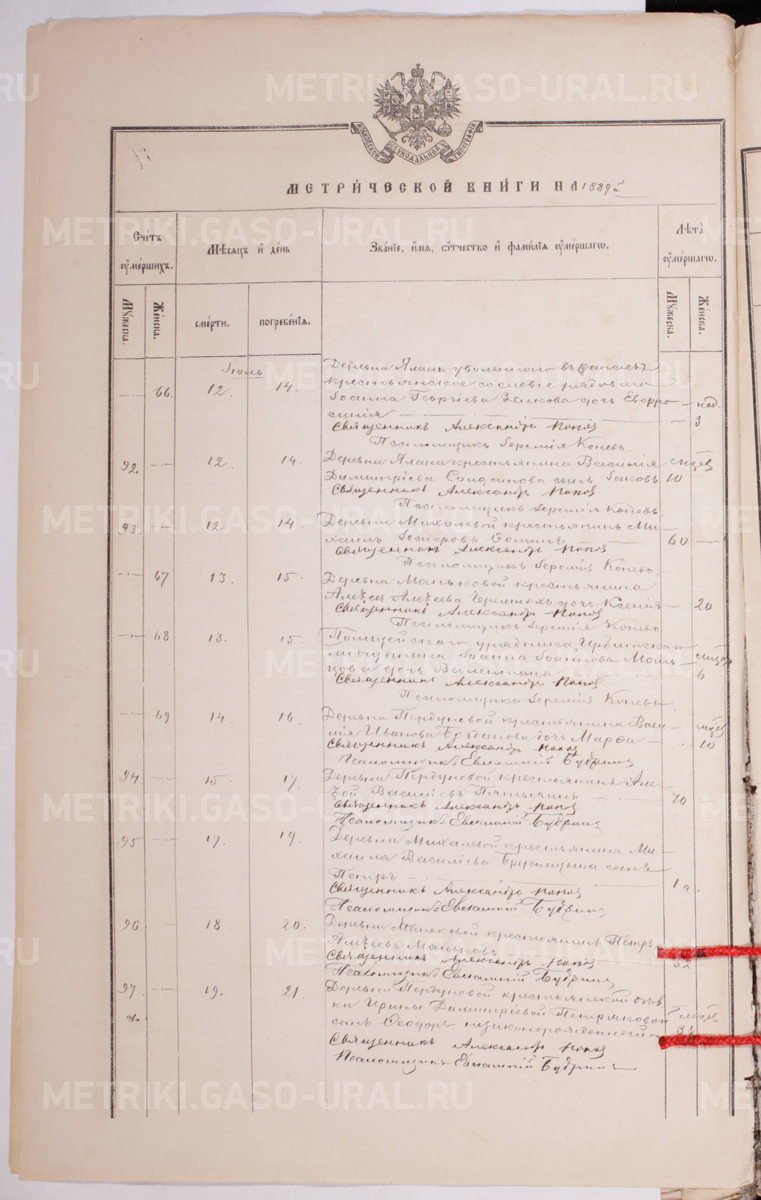 METRIKI.GASO-URAL.RU
МОСКОВСКОЙ СѴНОДАЛЬНОЙ ТИПОГРАФІИ
МЕТРИЧЕСКОЙ КНИГИ НА 1889 г.
Счетъ оумершихъ.
Мѣсяцъ и день
Званіе, имя, отчество и фамилія оумершагѡ.
Лѣта оумершагѡ.
Мужеска.
Женска.
смерти.
погребенія.
Мужеска.
Женска.
Іюль
66. 12. 14. Деревни Ялани уволеннаго въ запасъ
крестьянское сословіе рядоваго
Іоанна Георгіева дочь Евфро-
синія — 3
Священникъ Александръ Попов
Псаломщикъ Іеремія Коневъ.
92. 12 14. Деревни Ялани крестьянина Василія
Димитріева Солдатова сынъ Іаковъ 10
Священникъ Александръ Попов
Псаломщикъ Іеремія Коневъ.
93. 12. 14. Деревни крестьянинъ Ми-
хаилъ 60
Священникъ Александръ Попов
Псаломщикъ Іеремія Коневъ.
67 13. 15. Деревни Маньковой крестьянина
Алексѣя Алексѣева дочь Ксенія — 20
Священникъ Александръ Попов
Псаломщикъ Іеремія Коневъ.
68 13. 15. Полицейскаго урядника Ирбитскаго
мѣщанина Іоанна
дочь Валентина 6
Священникъ Александръ Попов
Псаломщикъ Іеремія Коневъ.
69 14. 16. Деревни Пердуновой крестьянина Васи-
лія Иванова Богданова дочь Марѳа — 10
Священникъ Александръ Попов
Псаломщикъ Евѳимій Будринъ
94 15 17. Деревни Пердуновой крестьянинъ Але-
ксѣй Васильевъ 70
Священникъ Александръ Попов
Псаломщикъ Евѳимій Будринъ
95 17. 19. Деревни крестьянина Ми-
хаила Васильева сынъ
Петръ — 1 г.
Священникъ Александръ Попов
Псаломщикъ Евѳимій Будринъ
96 18 20. Деревни Маньковой крестьянинъ Петръ
Алексѣевъ Маньковъ
Священникъ Александръ Попов
Псаломщикъ Евѳимій Будринъ
97 19. 21. Деревни Пердуновой крестьянской дѣв-
ки Ирины Димитріевой
сынъ Ѳеодоръ незаконнорожденный —
Священникъ Александръ Попов
Псаломщикъ Евѳимій Будринъ